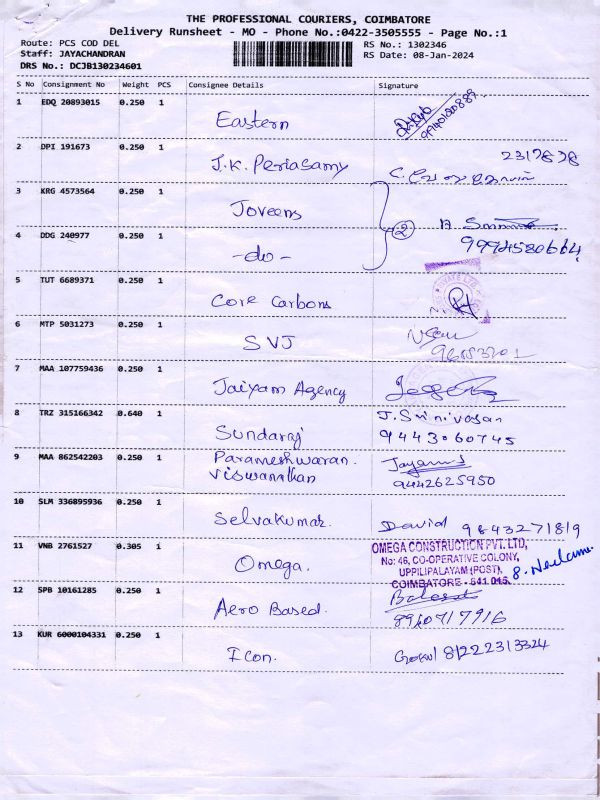 THE PROFESSIONAL COURIERS, COIMBATORE
Delivery Runsheet - MO - Phone No.:0422-3505555 - Page No.:1
Route: PCS COD DEL
RS No.: 1302346
Staff: JAYACHANDRAN
RS Date: 08-Jan-2024
DRS No.: DCJB130234601
S No Consignment No Weight PCS Consignee Details Signature
1 EDQ 20893015 0.250 1
Eastern
2 DPI 191673 0.250 1
2317878
J.K. Periasamy
3 KRG 4573564 0.250 1
Joveens
2
4 DDG 240977 0.250 1
-do-
9994580664
5 TUT 6689371 0.250 1
Core Carbons
6 MTP 5031273 0.250 1
SVJ
7 MAA 107759436 0.250 1
Jaiyam Agency
8 TRZ 315166342 0.640 1
J. Srinivasan
Sundaraj 9443060745
9 MAA 862542203 0.250 1
Parameshwaran.
Viswanathan
9442625950
10 SLM 336895936 0.250 1
Selvakumar. David 9843271819
11 VNB 2761527 0.305 1
OMEGA CONSTRUCTION PVT. LTD,
No: 46, CO-OPERATIVE COLONY,
Omega. UPPILIPALAYAM (POST),
COIMBATORE - 641 015.
12 SPB 10161285 0.250 1
Aero Based.
8940717916
13 KUR 6000104331 0.250 1
Icon. Gokul 81222313324